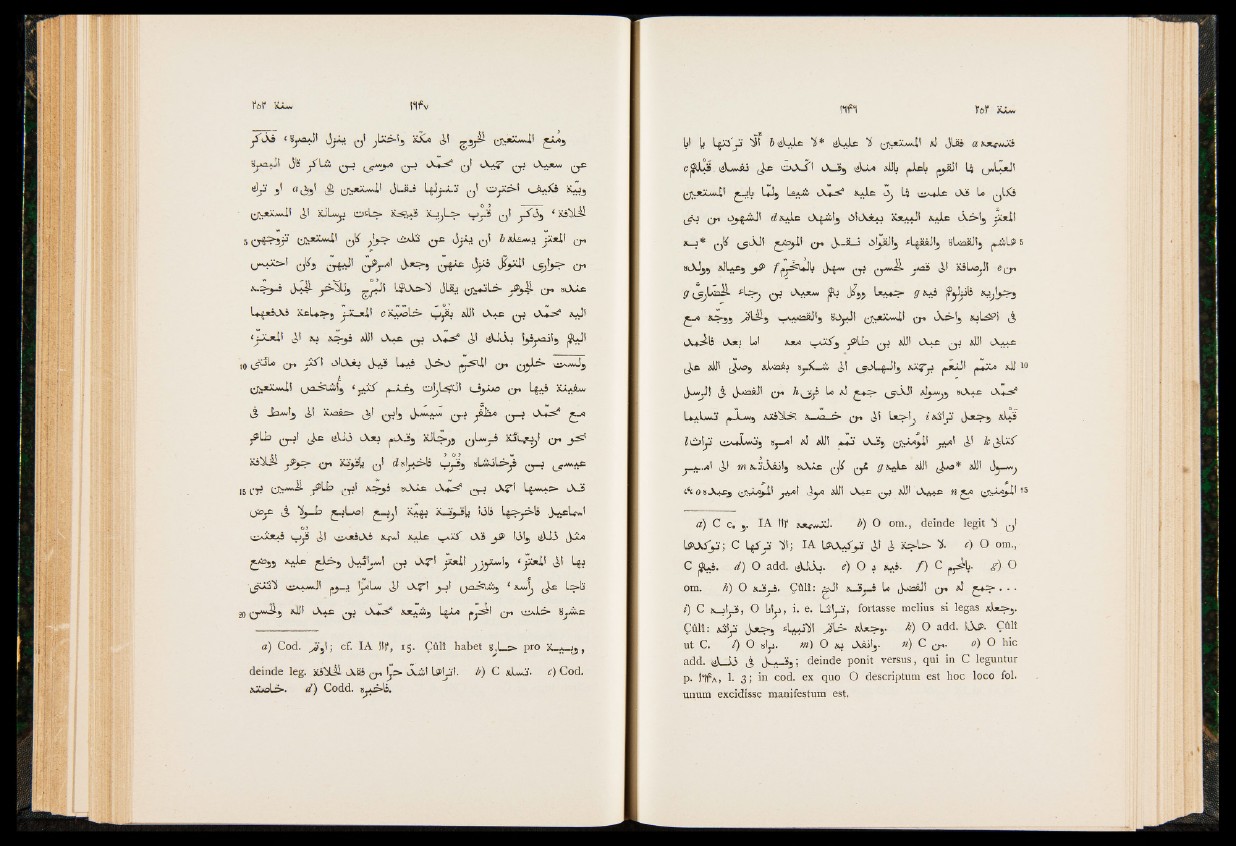 ۱۶۴۶ سنة ۲۵۲
فتسمعه a فقال له المستعين لا عليك *لا عليك b ألّا تركتها يا ابا
العبّاس فما القوم بأعلم بالله منك وقد اكّدت على نفسك قبلكم c
فكان ما قد علمت فما ردّ عليه محمد شيئا ولمّا بايع المستعين
المعتزّ وأخذ عليه البيعة ببغداد وأشهد عليه d الشهود من بنى
5 هاشم والقضاة والفقهاء والقوّاد نقل من الموضع الذى كان *به
من e الرصافة الى قصر الحسن بن سهل بالمخرّم f هو وعياله وولده
وجواريه فأنزلوهم فيه g جميعا ووكّل بهم سعيد بن رجاء الحضارىّ g
فى اصحابه وأخذ من المستعين البردة والقضيب والخاتم ووجّه مع
عبيد الله بن عبد الله بن طاهر وكتب معه اما بعد فالحمد
10 لله متمّم النعم برحمته والهادى الى شكره بفضله وصلّى الله على
محمد عبده ورسوله الذى جمع له ما فرّق h من الفضل فى الرسل
قبله وجعل تراثه i راجعا الى من خصّه بخلافته وسلّم تسليما
كتابى k الى امير المؤمنين وقد تمّم الله له امره وتسلّمت تراث l
رسول الله *صلى الله عليه g ممّن كان عنده وأنفذته m الى امير
15 المؤمنين مع n عبيد الله عبد الله مولى امير المؤمنين وعبده o
a) C c. و. IA ۱۱۳ لتسمعه. b) O om., deinde legit ان لا
توكدها; C الا تركها; IA لا حاجة لى الى توكيدها. c) O om.,
C فيكم. d) O add. بذلك. e) O فيه و. f) C بالمحرم. g) O
om. h) O فرقه. Çûlî: جمع له من الفضل ما فرقه الخ ...
i) C قرابه, O براثا, i. e. تراثا, fortasse melius si legas جعله.
Çûlî: جعله خاتم الانبياء وجعل تراثه. k) O add. هذا. Çûlî
ut C. l) O براه. m) O وانفذ به. n) C من. o) O hic
add. وقيل فى ذلك; deinde ponit versus, qui in C leguntur
p. ۱۶۴۸, l. 3; in cod. ex quo O descriptum est hoc loco fol.
unum excidisse manifestum est.
سنة ۲۵۲ ۱۶۴۷
ومُنع المستعين الخروج الى مكّة واختار ان ينزل البصرة، فذكر
عن سعيد بن حميد ان محمد بن موسى بن شاكر قال البصرة
وبيّة فكيف اخترت ان تنزلها فقال المستعين هى اوبى a او ترك
الخلافة، وذكر ان قُرْب جارية قبيحة جاءت برسالة الى المستعين
5 من المعتزّ يسئله b ان ينزل عن ثلث جوار كان المستعين تزوّجهن
من جوارى المتوكّل فنزل عنهنّ وجعل امرهنّ اليهنّ وكان احتبس
عنده من الجوهر خاتمين يقال لاحدهما البُرج وللآخر الجبل فوجّه
اليه محمد بن عبد الله بقُرْب خاصّية c المعتزّ وجماعة فدفعهما
اليهم وانصرفوا بذلك الى محمد بن عبد الله فوجّه به الى المعتزّ،
10 ولستّ خلون من المحرّم دخل فيما قيل بغداد اكثر من مائتى
سفينة فيها من صنوف التجارات وغنم كثير، وأشخص المستعين
مع محمد بن مظفّر بن سيسل وابن ابى حفصة الى واسط فى
نحو من اربعمائة فرسان ورجّالة وقدم بعد ذلك على ابن طاهر
عيسى بن فرّخانشاه وقُرْب فأخبراه d ان ياقوتة من جوهر الخلافة
15 قد حبسها احمد بن محمد عنده فوجّه ابن طاهر الحسين بن
اسماعيل فأخرجها فاذا ياقوتة بهيّة اربع اصابع طولا فى عرض
مثل ذلك واذا هو قد كتب عليه اسمه فدفعت الى قُرْب فبعثت
بها الى المعتزّ، واستوزر المعتزّ احمد بن اسرائيل وخلع عليه ووضع
تاجا على رأسه، وشخص ابو احمد الى سامرّا يوم السبت لاثنتى
20 عشرة خلت من المحرّم منها وشيّعه محمد بن عبد الله والحسن
a) Cod. اوفر; cf. IA ۱۱۳, 15. Çûlî habet حارّة pro وبيّة,
deinde leg. اتراها اشدّ حرّا من فقد الخلافة. b) C تسله. c) Cod.
خاصته. d) Codd. فاخبره.